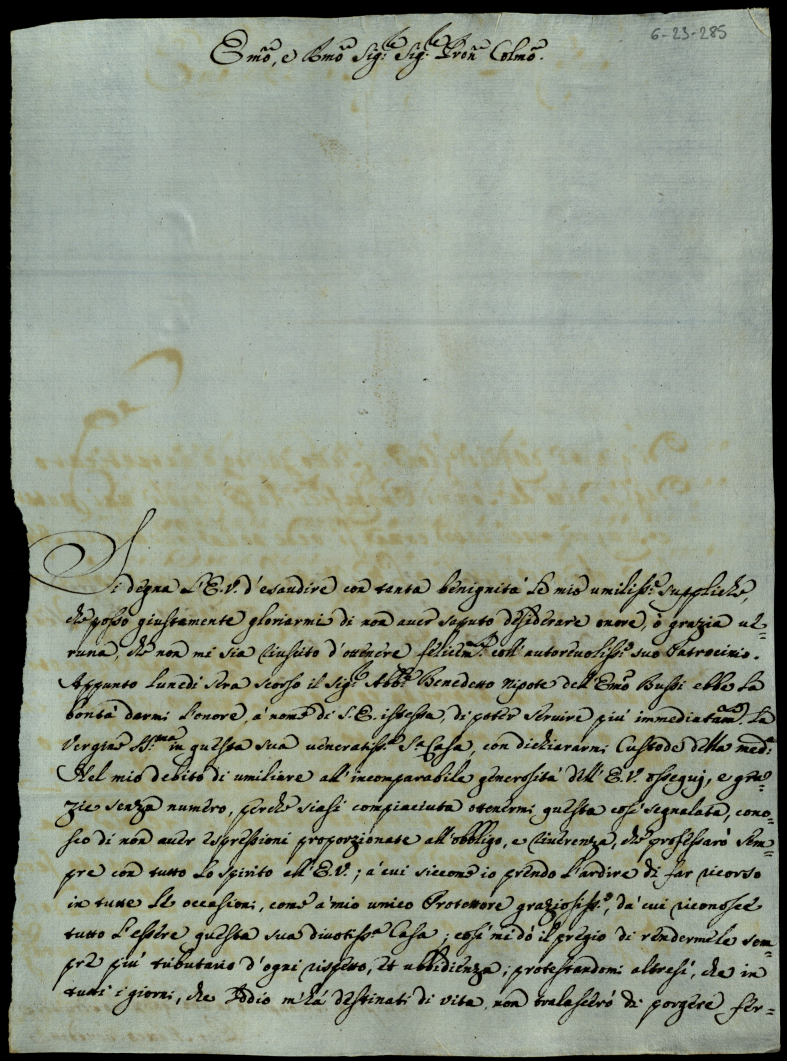 6-23-285
Emõ, e Rmõ Sig.re Sig.re Pron̄ Colmõ.
Si degna L'E.V. d'esaudire con tanta benignità le mie umiliss.e suppliche,
che posso giustamente gloriarmi di non aver saputo desiderare onore, ò grazia ve-
runa, che non mi sia riuscito d'ottenere felicem.te coll'autorevoliss.o suo Patrocinio.
Appunto Lunedì sera scorso il Sig.r Abb.e Benedetto Nipote dell'Emõ Bussi ebbe la
bontà darmi l'onore, à nome di S.E. istessa, di poter servire più immediatam.te La
Vergine SS.ma in questa sua veneratiss.a S.ta Casa, con dichiararmi Custode della med.a
Nel mio debito di umiliare all'incomparabile generosità dell'E.V. ossequj, e gra-
zie senza numero, perche siasi compiaciuta ottenermi questa così segnalata, cono-
sco di non aver espressioni proporzionate all'obbligo, e riverenza, che professarò sem-
pre con tutto lo spirito all'E.V.; à cui siccome io prendo l'ardire di far ricorso
in tutte le occasioni, come à mio unico Protettore graziosiss.o, da cui riconosce
tutto l'essere questa sua divotiss.a Casa; così mi dò il pregio di rendermele sem-
pre più tributario d'ogni rispetto, et ubbidienza; protestandomi altresì, che in
tutti i giorni, che Iddio m'hà destinati di vita, non tralascerò di porgere fer-